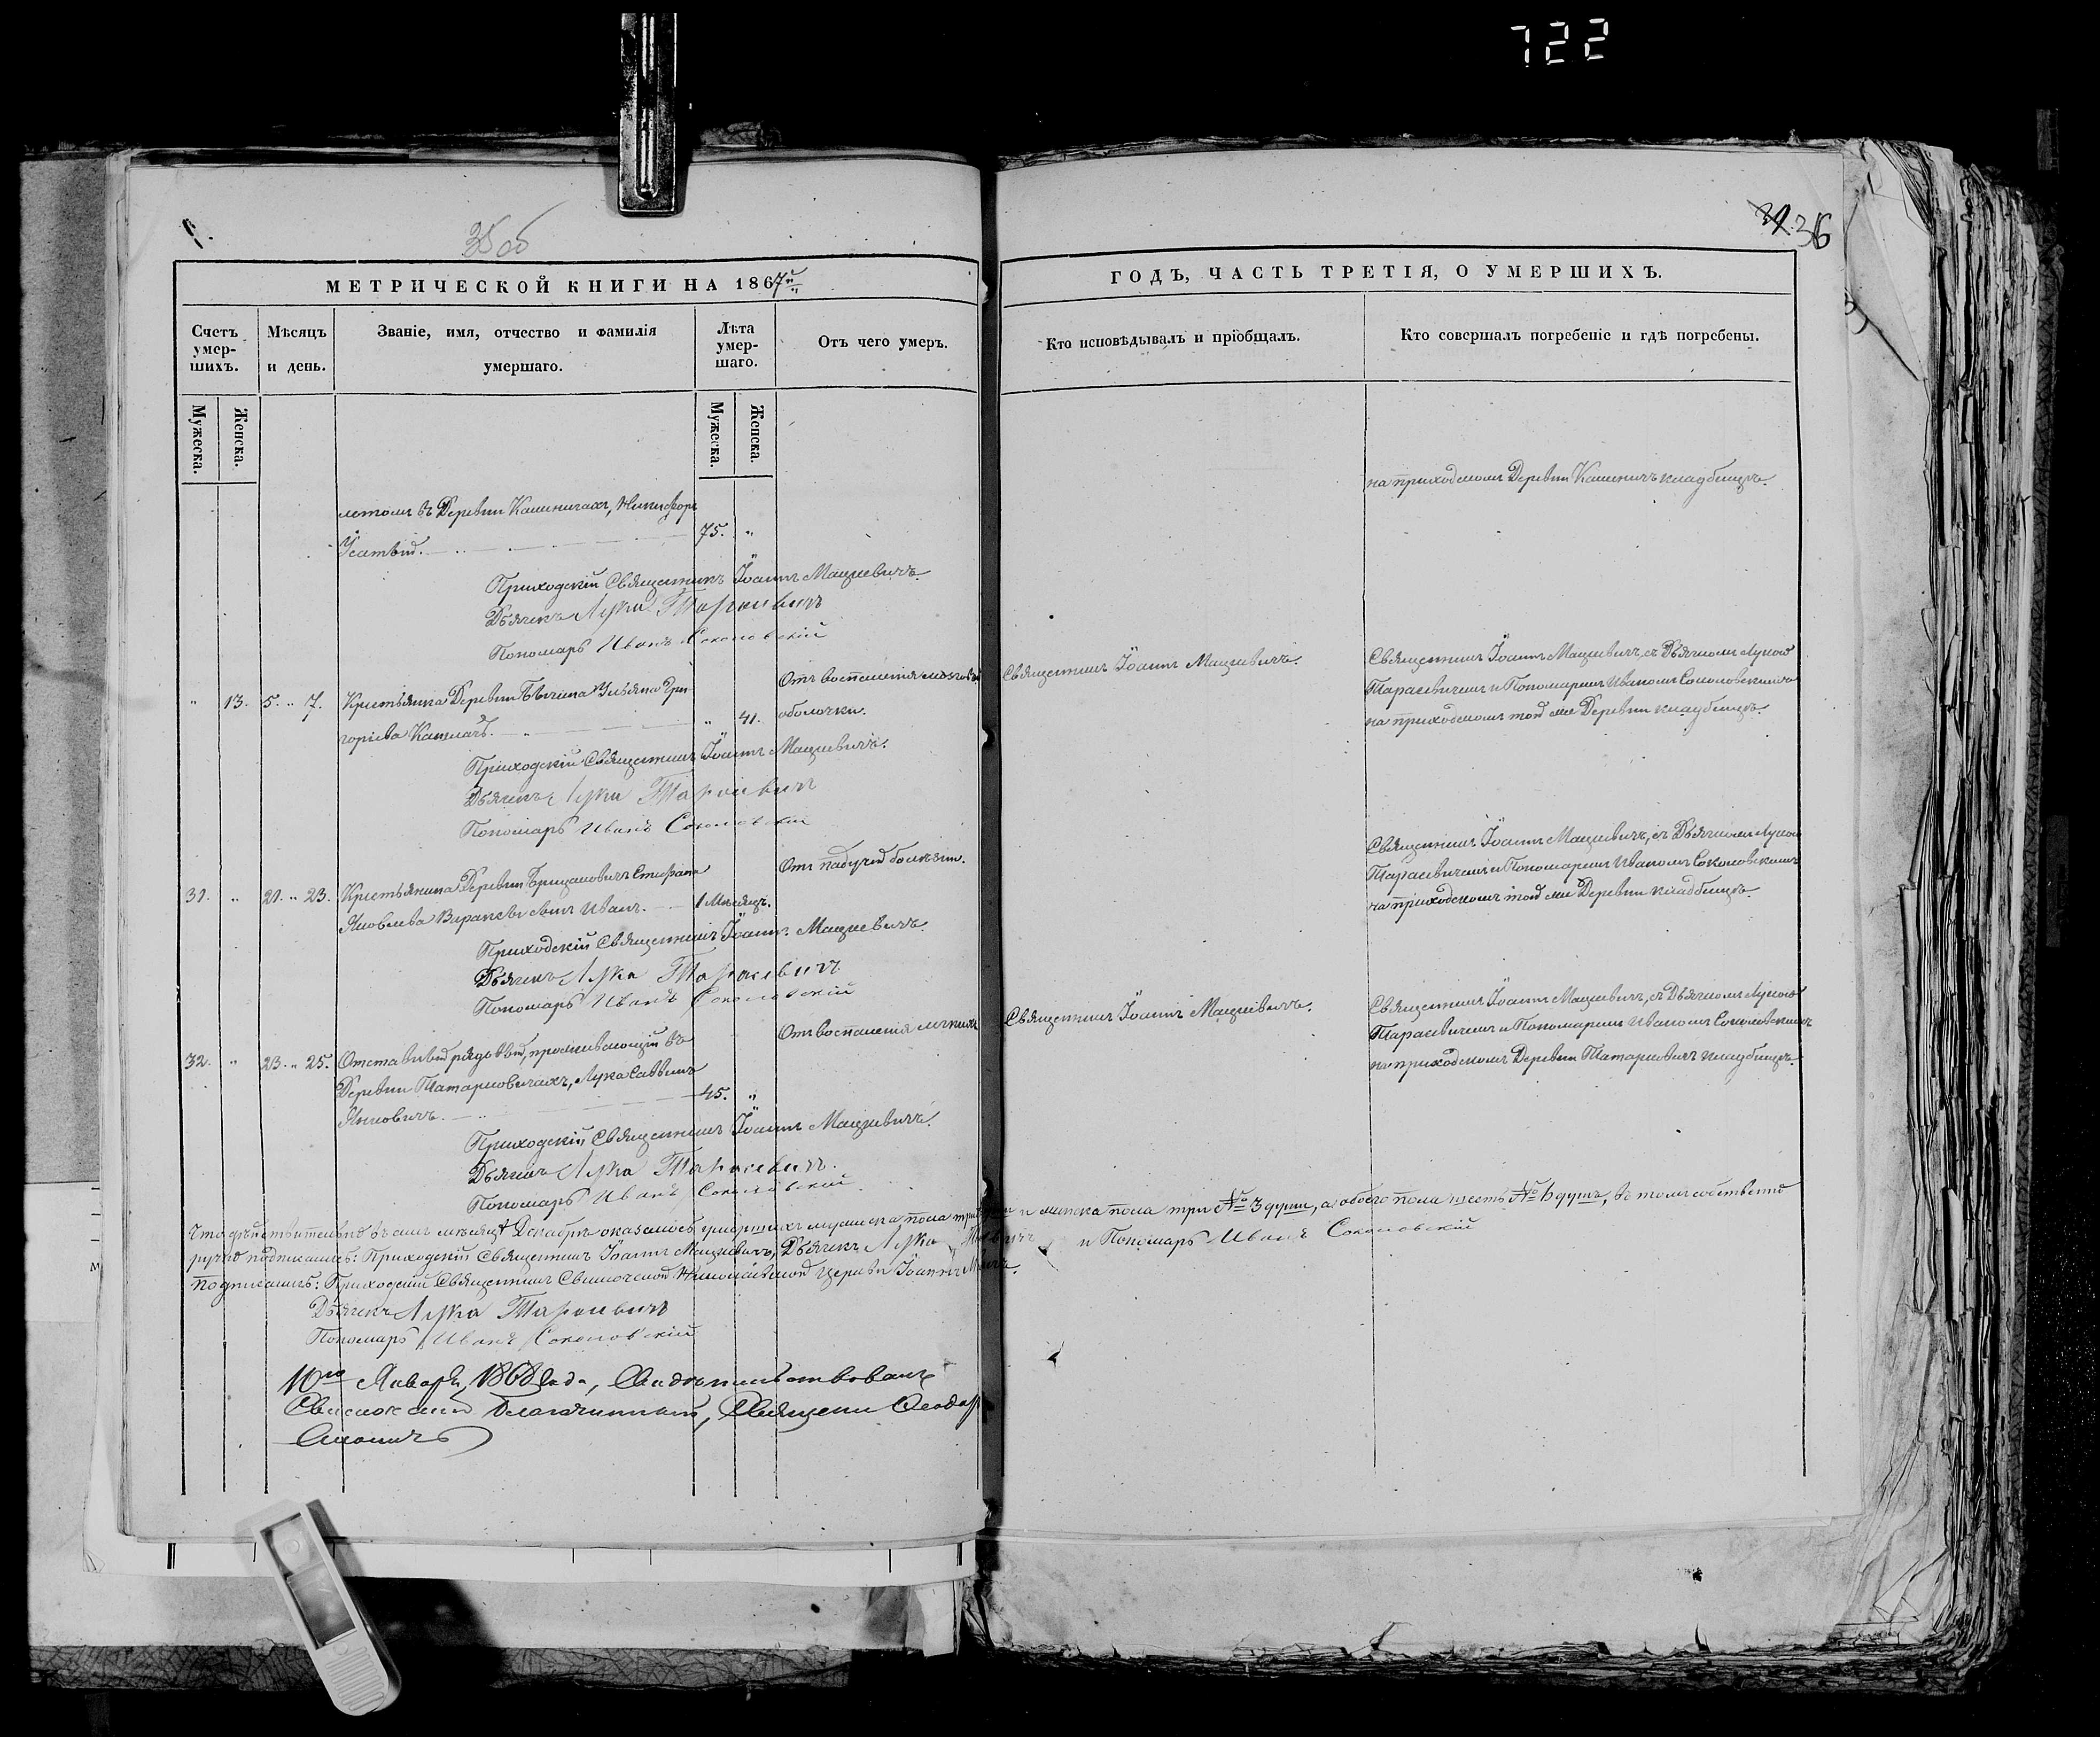 722
35 об
31 36
МЕТРИЧЕСКОЙ КНИГИ НА 1867й
ГОДЪ, ЧАСТЬ ТРЕТІЯ, О УМЕРШИХЪ.
Счетъ умер-шихъ.
Мѣсяцъ и день.
Званіе, имя, отчество и фамилія умершаго.
Лѣта умер-шаго.
Отъ чего умеръ.
Кто исповѣдывалъ и пріобщалъ.
Кто совершалъ погребеніе и гдѣ погребены.
Мужеска.
Женска.
Мужеска.
Женска.
летомъ въ Деревни Каменичахъ, Никифоръ
75. „
на приходскомъ Деревни Каменичъ кладбищѣ.
Приходскій Священникъ Іоаннъ Мацкевичъ.
Дьячекъ Лука Тарасевичъ
Пономарь Иванъ Соколовскій
„ 13. 5. „ 7. Крестьянка Деревни Ульяна Гри-
горіева „ 41.
Отъ воспаленія мозговой
оболочки.
Священникъ Іоаннъ Мацкевичъ.
Священникъ Іоаннъ Мацкевичъ, съ Дьячкомъ Лукою
Тарасевичемъ и Пономаремъ Иваномъ Соколовскимъ
на приходскомъ той же Деревни кладбищѣ.
Приходскій Священникъ Іоаннъ Мацкевичъ.
Дьячекъ Лука Тарасевичъ
Пономарь Иванъ Соколовскій
31. „ 21. „ 23. Крестьянина Деревни Стефана
Яковлева сынъ Иванъ. 1 Мѣсяцъ.
Отъ падучей болѣзни.
Священникъ Іоаннъ Мацкевичъ, съ Дьячкомъ Лукою
Тарасевичемъ и Пономаремъ Иваномъ Соколовскимъ
на приходскомъ той же Деревни кладбищѣ.
Приходскій Священникъ Іоаннъ Мацкевичъ.
Дьячекъ Лука Тарасевичъ
Пономарь Иванъ Соколовскій
32. „ 23. „ 25. Отставный рядовый, проживающій въ
Деревни Татарновичахъ, Лука Саввинъ
45. „
Отъ воспаленія легкихъ
Священникъ Іоаннъ Мацкевичъ.
Священникъ Іоаннъ Мацкевичъ, съ Дьячкомъ Лукою
Тарасевичемъ и Пономаремъ Иваномъ Соколовскимъ
на приходскомъ Деревни кладбищѣ.
Приходскій Священникъ Іоаннъ Мацкевичъ.
Дьячекъ Лука Тарасевичъ.
Пономарь Иванъ Соколовскій
Что дѣйствительно въ семъ мѣсяцѣ Декабрѣ оказалось умершихъ мужеска пола три и женска пола три № 3 души, а обоего пола шесть № 6 душъ, въ томъ собственно
ручно подписались: Приходскій Священникъ Іоаннъ Мацкевичъ, Дьячекъ Лука и Пономарь Иванъ Соколовскій
подписались: Приходскій Священникъ Свислочской Николаевской Церкви Іоаннъ
Дьячекъ Лука Тарасевичъ
Пономарь Иванъ Соколовскій
10го Января 1868 года, Свидѣтельствовалъ
Свислочскій Благочинный, Священ Ѳеодор